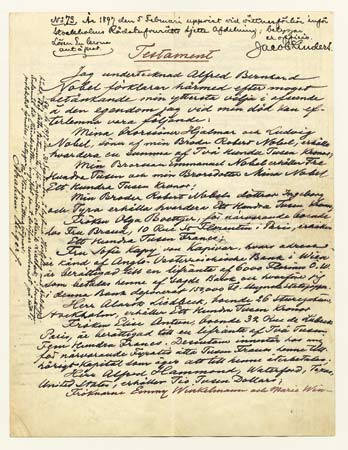 No 73. År 1897 den 5 Februari uppvist vid vittnesförhör inför
Stockholms Rådstufvurätts sjette Afdelning; betygar
ex officio
Jacob Lindert
Testament
Jag undertecknad Alfred Bernhard
Nobel förklarar härmed efter moget
betänkande min yttersta vilja i afseende
å den egendom jag vid min död kan ef-
terlemna vara följande:
Mina Brorsöner Hjalmar och Ludvig
Nobel, söner af min Broder Robert Nobel, erhålla
hvardera en summa af Två Hundra Tusen Kronor;
Min Brorson Emmanuel Nobel erhåller Tre
Hundra Tusen och min Brorsdotter Mina Nobel
Ett Hundra Tusen Kronor;
Min Broder Robert Nobels döttrar Ingeborg
och Tyra erhålla hvardera Ett Hundra Tusen Kronor;
Fröken Olga Boettger, för närvarande boende
hos Fru Brand, 10 Rue St Florentin i Paris, erhåller
Ett Hundra Tusen Francs;
Fru Sofie Kapy von Kapivar, hvars adress
är känd af Anglo-Oesterreichische Bank i Wien
är berättigad till en lifränta af 6000 Florins Ö.W.
som betalas henne af sagde Bank och hvarför jag
i denna Bank deponerat 150,000 Fl. i Ungerska Statspapper;
Herr Alarik Liedbeck, boende 26 Sturegatan,
Stockholm, erhåller Ett Hundra Tusen Kronor;
Fröken Elise Antun, boende 32 Rue de Lubeck,
Paris, är berättigad till en lifränta af Två Tusen
Fem Hundra Francs. Dessutom innestår hos mig
för närvarande Fyratio åtta Tusen Francs henne till-
hörigt kapital som äger att till henne återbetalas;
Herr Alfred Hammond, Waterford, Texas,
United States, erhåller Tio Tusen Dollars;
Fröknarne Emmy Winkelmann och Marie Win-